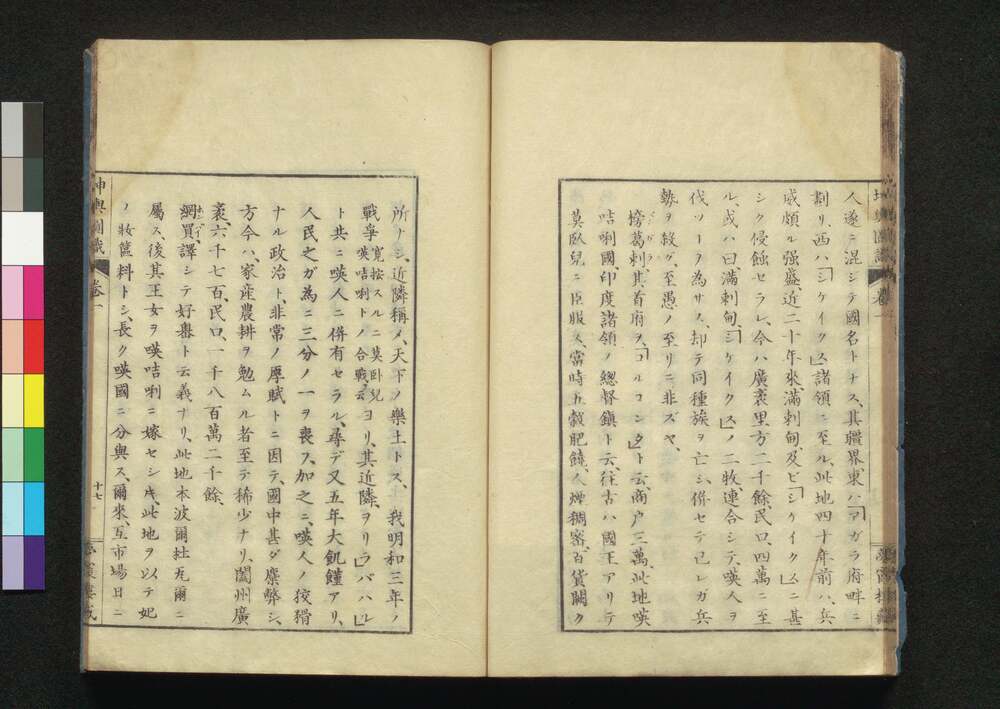 人遂ニ混シテ國名トナス、其疆界、東ハ「アガラ府畔ニ
劃リ、西ハ「シケイクス」諸領ニ至ル、此地四十年前ハ、兵
威頗ル强盛、近二十年來、滿剌甸、及ビ「シケイクス」ニ甚
シク侵蝕セラレ、今ハ廣袤里方二千餘、民口、四萬ニ至
ル、或ハ曰滿剌甸、「シケイクス」ノ二牧、連合シテ、暎人ヲ
伐ツコヲ為サス、却テ同種族ヲ亡シ、併セテ己レガ兵
勢ヲ殺グ、至愚ノ至リニ非ズヤ、
榜葛剌、其首府ヲ、「コルコンタ」ト云、商戶三萬、此地暎
咭唎國、印度諸領ノ總督鎭ト云、往古ハ國王アリテ
莫臥兒ニ臣服ス、當時五穀肥饒、人煙稠密、百貨闕ク
所ナシ、近隣稱〆、天下ノ樂土トス、我明和三年ノ
戰爭 寛按スルニ莫卧兒 暎咭唎トノ合戰ヲ云 ヨリ、其近隣、ヲリラ」バハレ」
ト共ニ暎人ニ併有セラル、尋デ又五年大飢饉アリ、
人民之ガ為ニ三分ノ一ヲ喪フ、加之ニ、暎人ノ狡猾
ナル政治ト、非常ノ厚賦トニ因テ、國中甚ダ糜弊シ、
方今ハ、家産農耕ヲ勉ムル者至テ稀少ナリ、闔州廣
袤、六千七百、民口、一千八百萬二千餘、
網買、譯シテ好畨ト云義ナリ、此地本波爾杜瓦爾ニ
屬ス、後其王女ヲ暎咭唎ニ嫁セシ片、此地ヲ以テ妃
ノ妝篋料トシ、長ク暎國ニ分與ス、爾來、互市場日ニ
坤輿圖識
卷一
十七